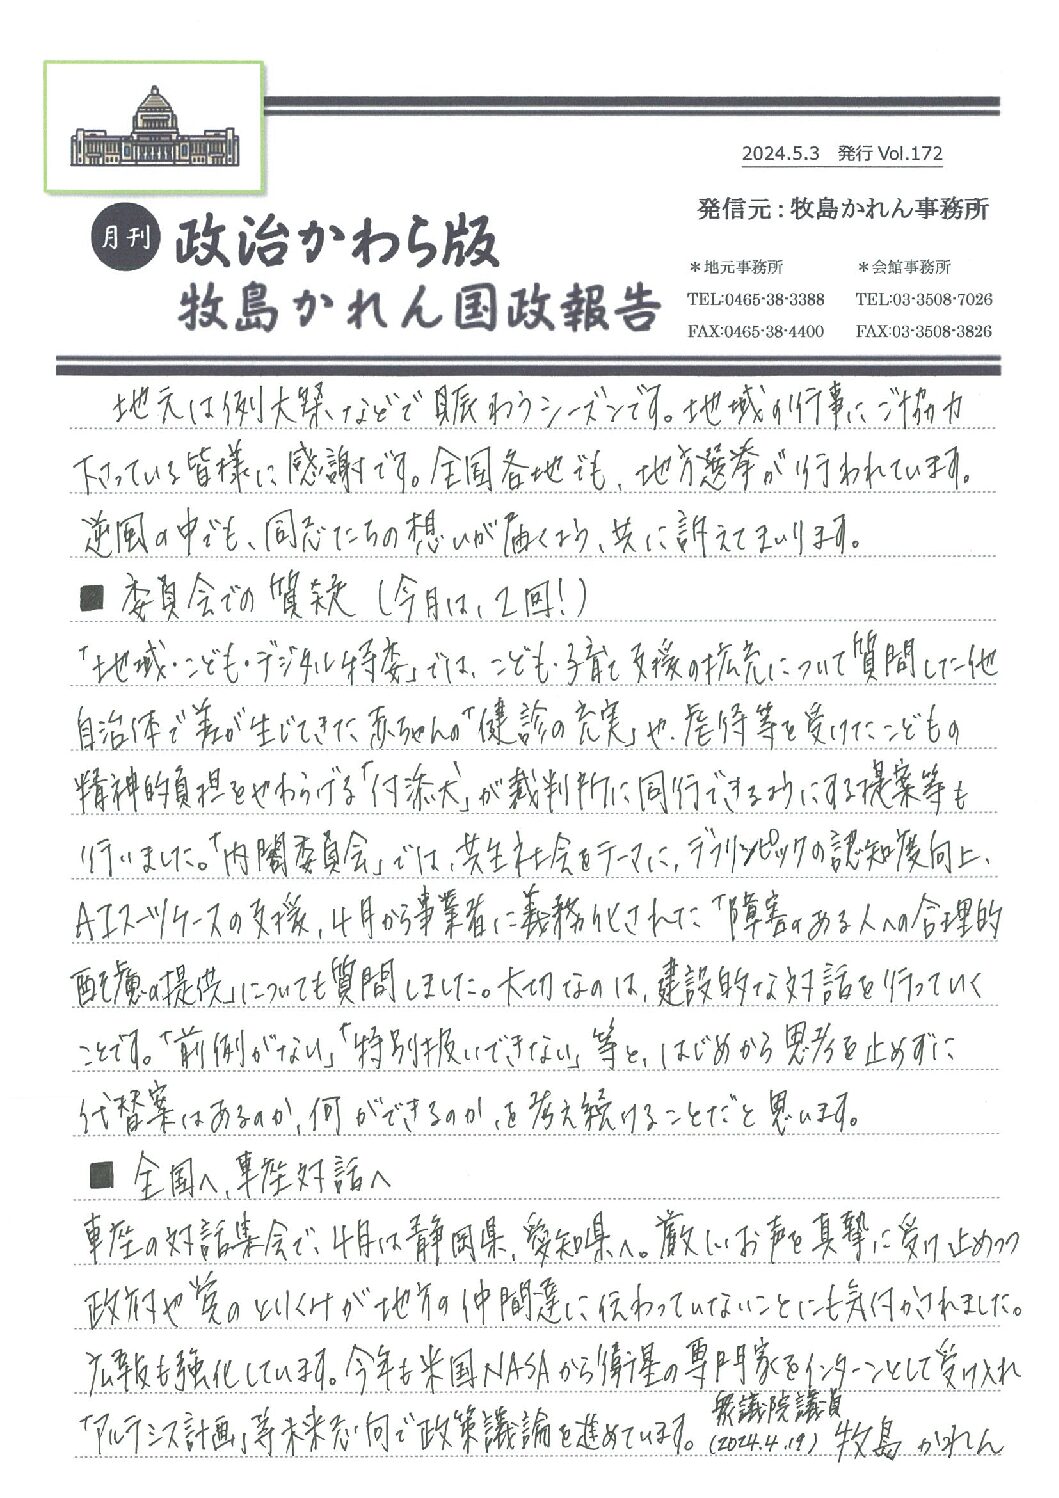 2024.5.3 発行 Vol.172
発信元：牧島かれん事務所
月刊 政治かわら版
牧島かれん国政報告
＊地元事務所
TEL:0465-38-3388
FAX:0465-38-4400
＊会館事務所
TEL:03-3508-7026
FAX:03-3508-3826
地元は例大祭、などで賑わうシーズンです。地域の行事にご協力
下さっている皆様に感謝です。全国各地でも、地方選挙が行われています。
逆風の中でも、同志たちの想いが届くよう、共に訴えてまいります。
■ 委員会での質疑（今月は、2回！）
「地域・こども・デジタル特委」では、こども・子育て支援の拡充について質問した他
自治体で差が生じてきた赤ちゃんの「健診の充実」や、虐待等を受けたこどもの
精神的負担をやわらげる「付添犬」が裁判所に同行できるようにする提案等も
行いました。「内閣委員会」では、共生社会をテーマに、デフリンピックの認知度向上、
AIスーツケースの支援、4月から事業者に義務化された「障害のある人への合理的
配慮の提供」についても質問しました。大切なのは、建設的な対話を行っていく
ことです。「前例がない」「特別扱いできない」等と、はじめから思考を止めずに
代替案はあるのか、何ができるのか、を考え続けることだと思います。
■ 全国へ、車座対話へ
車座の対話集会で、4月は静岡県、愛知県へ。厳しいお声を真摯に受け止めつつ
政府や党のとりくみが地方の仲間達に伝わっていないことにも気付かされました。
広報も強化しています。今年も米国NASAから衛星の専門家をインターンとして受け入れ
「アルテミス計画」等未来志向で政策議論を進めています。
衆議院議員
(2024.4.19) 牧島かれん